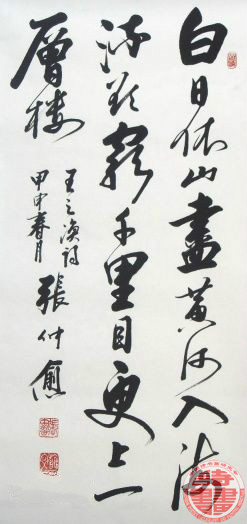 白日依山盡黄河入海
流欲窮千里目更上一
層楼
王之渙詩
甲申春月
張仲愈